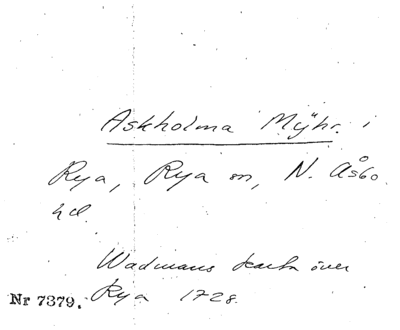 Askholma Mÿhr. i
Rya, Rya sn, N. Åsbo
hd.
Wadmans karta över
Nr 7379. Rya 1728.